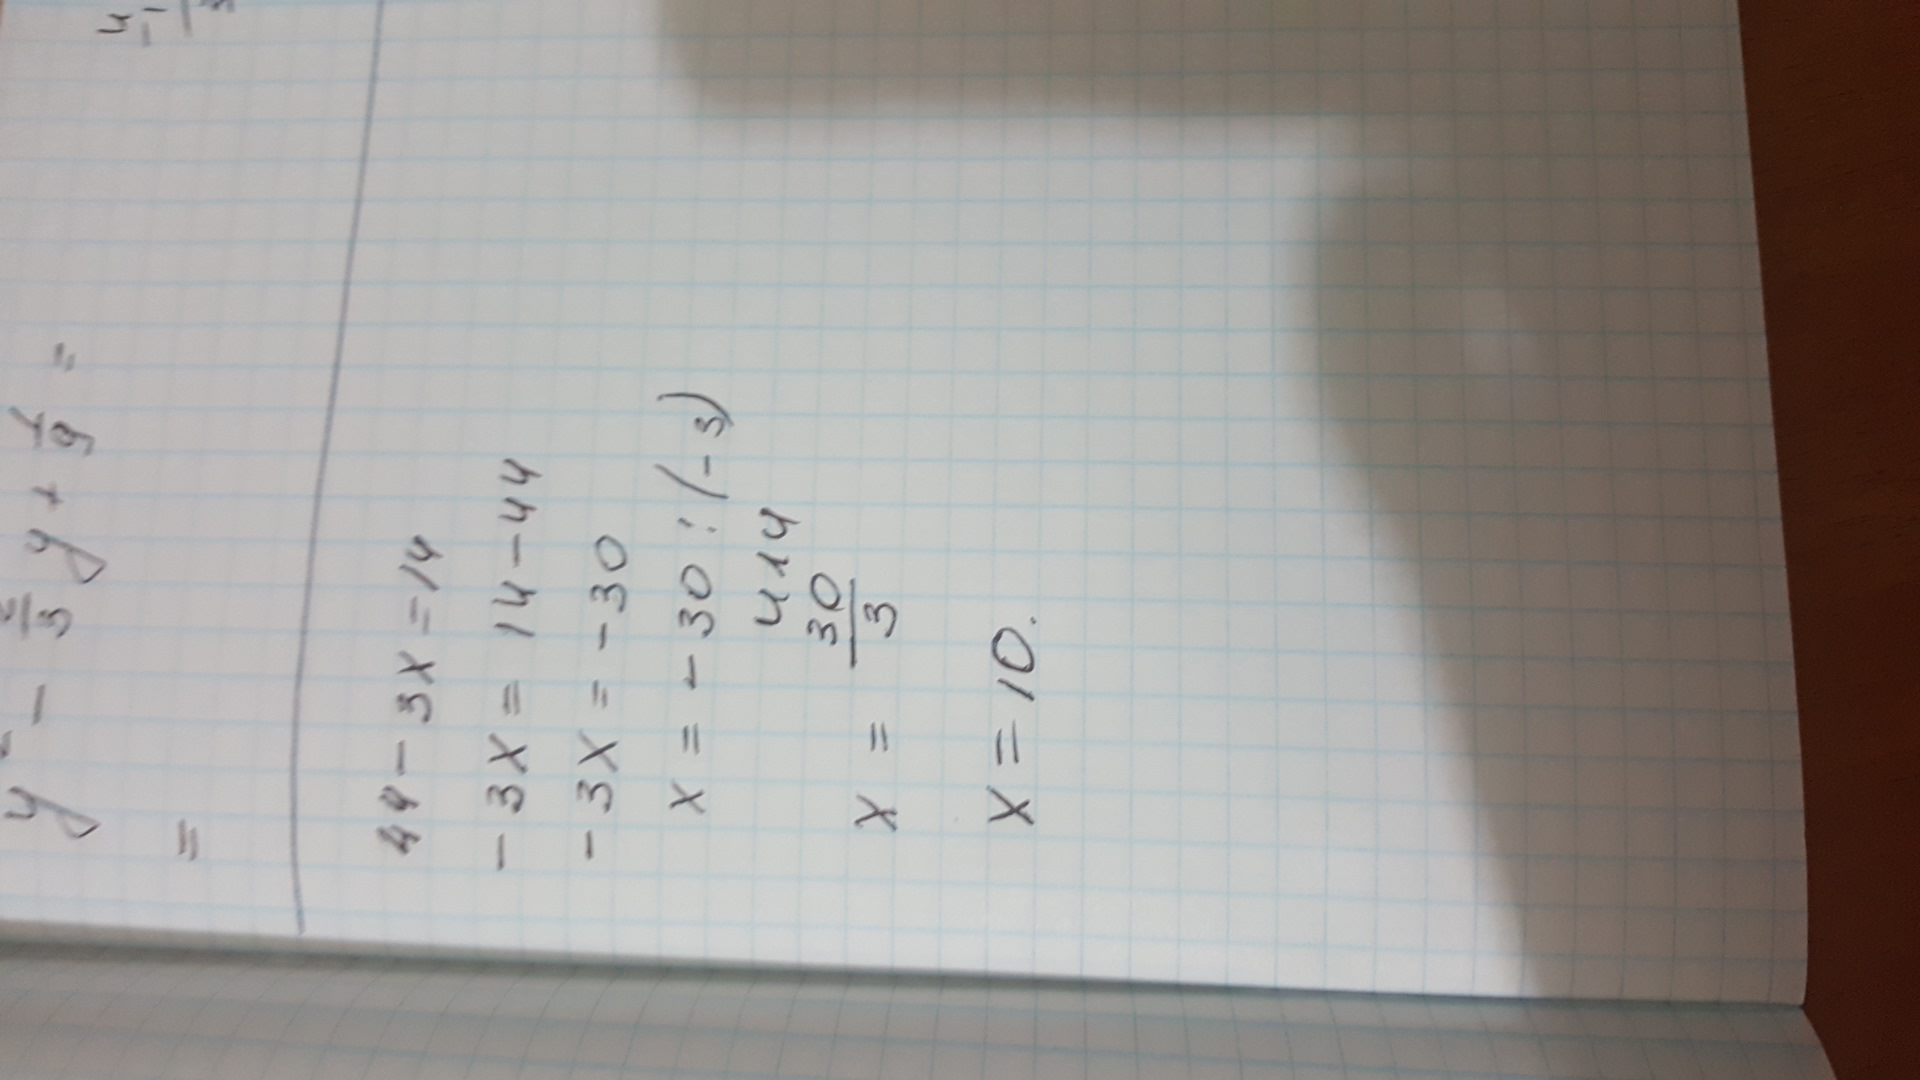 y² - 2/3 y + 1/9 =
=
44 - 3x = 14
-3x = 14 - 44
-3x = -30
x = -30 : (-3)
414
x = 30/3
x = 10.